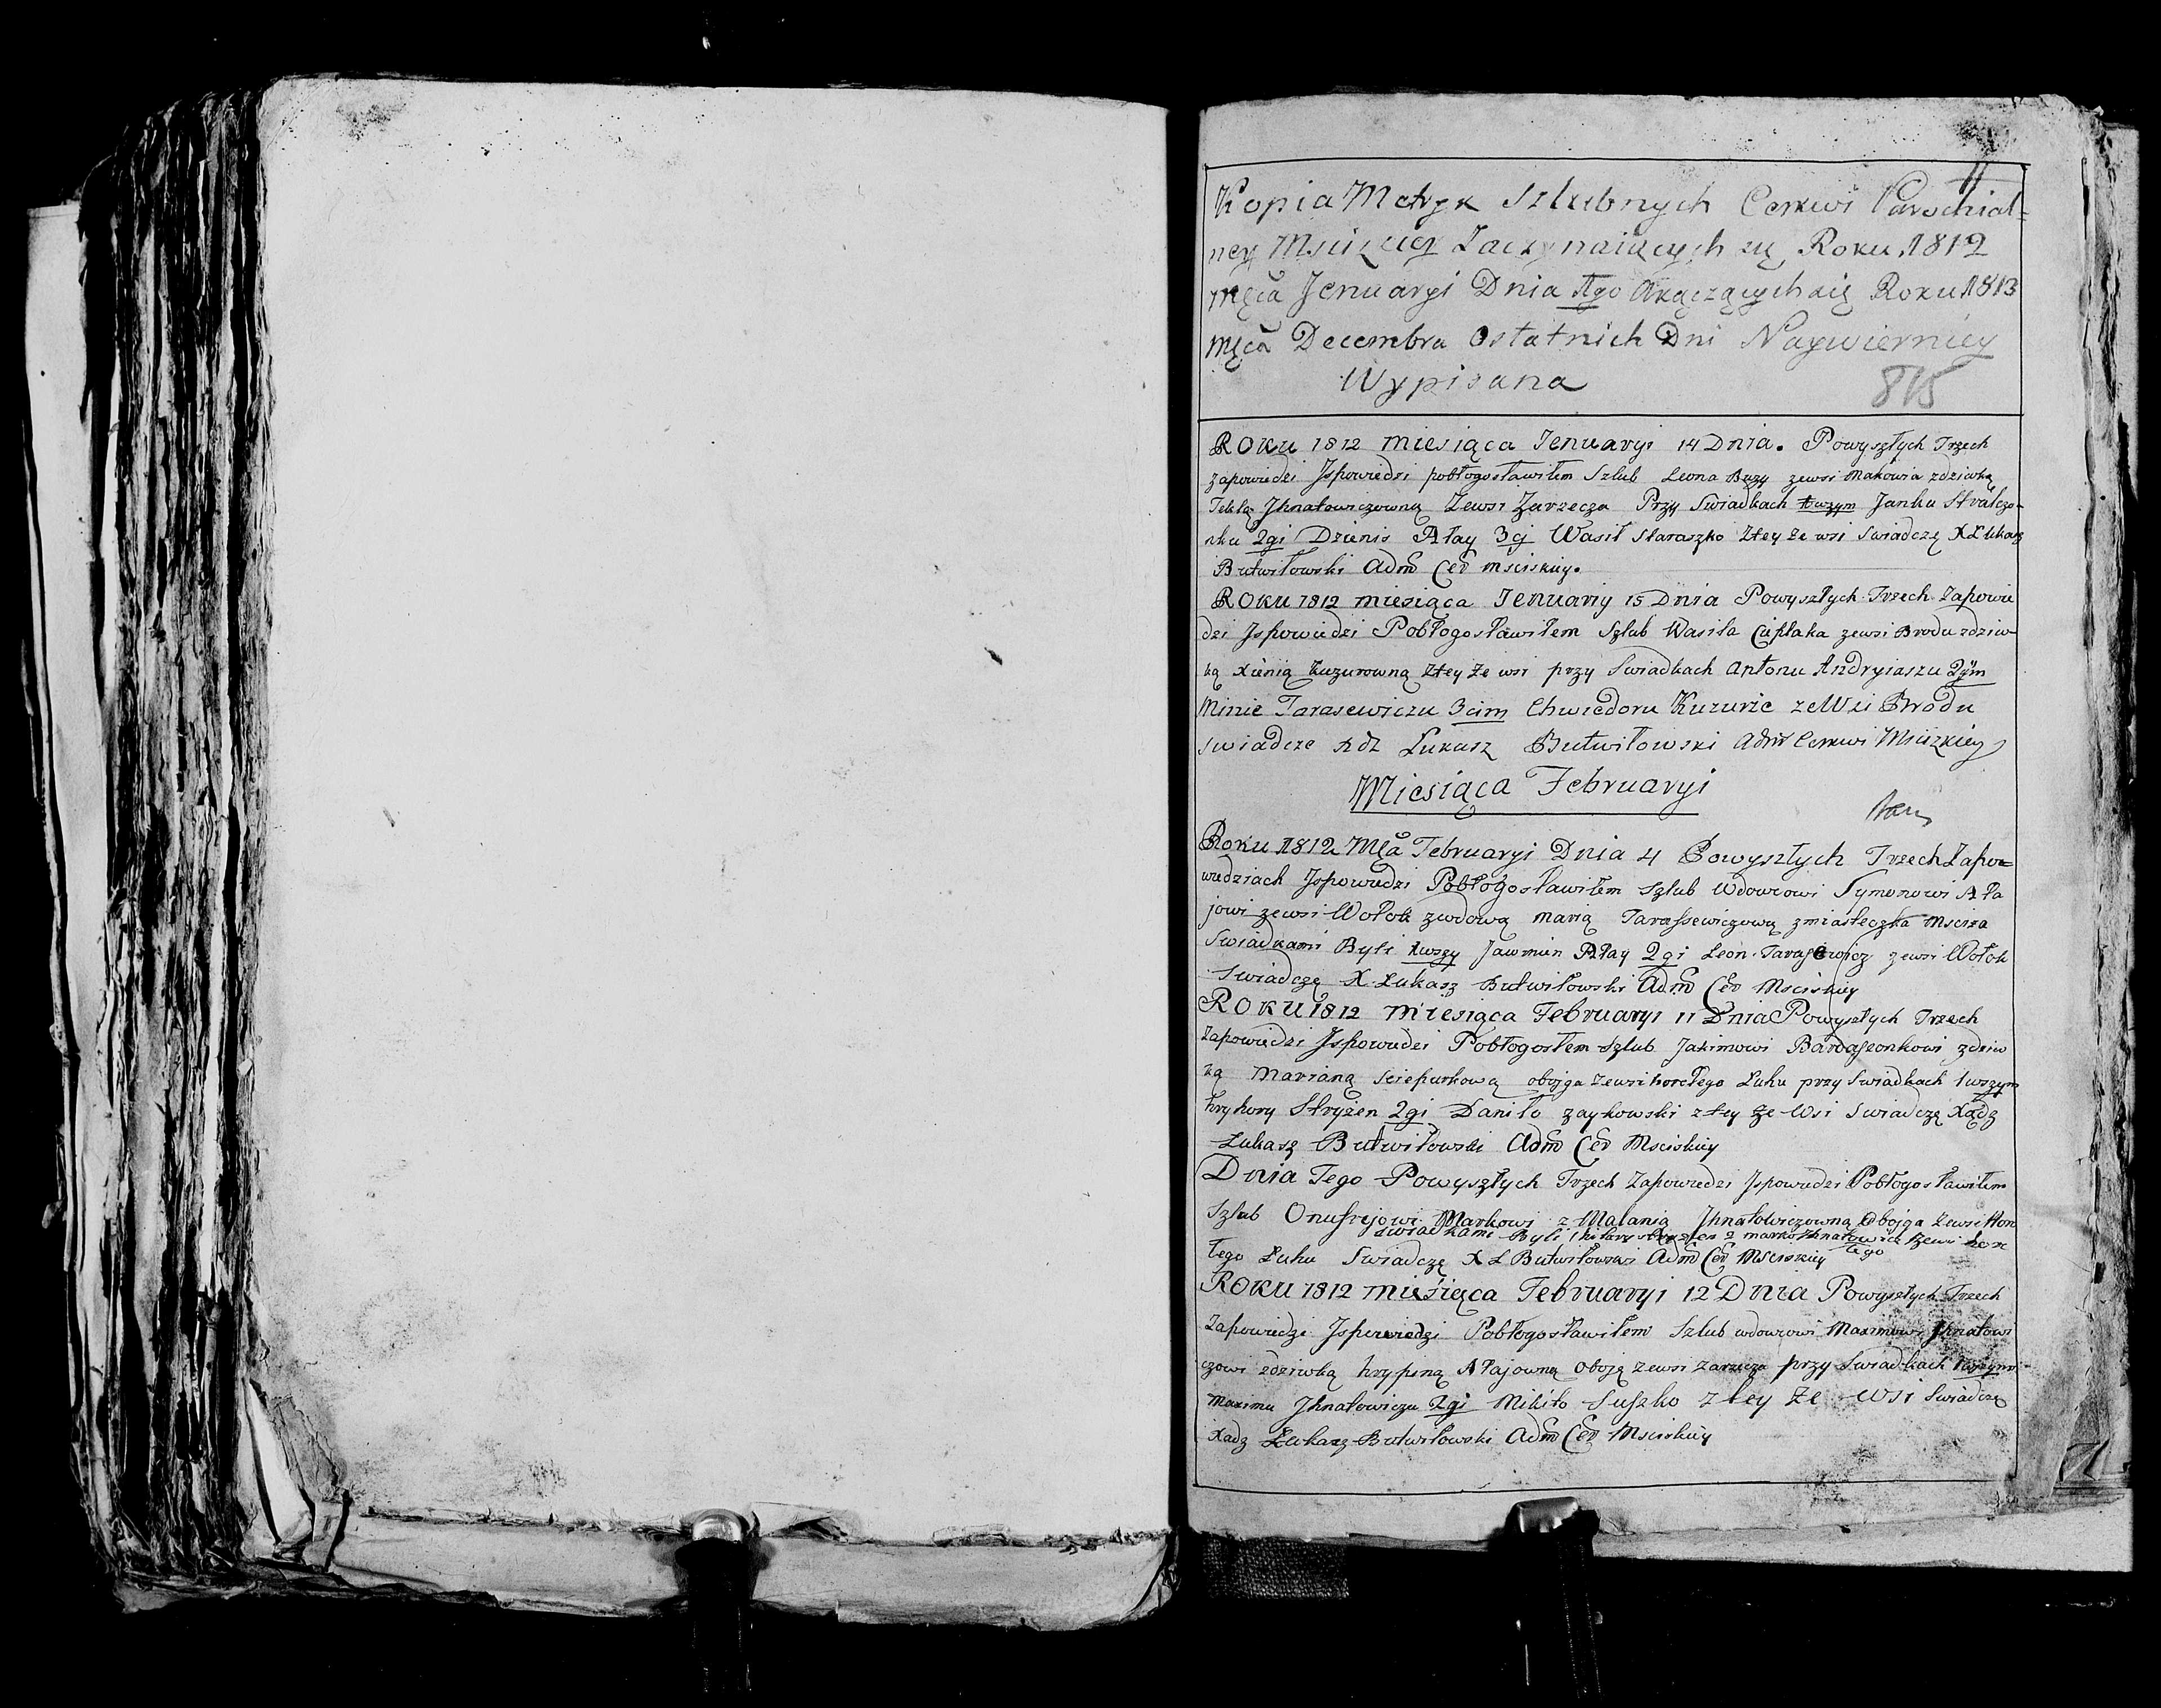 Kopia Metryk Szlubnych Cerkwi Parochial=
ney Mscizkiey Zaczynaiących się Roku 1812
Męca Jenuaryi Dnia 1go Akączących się Roku 1813
Męca Decembra Ostatnich Dni Naywierniey
Wypisana
815
ROKU 1812 miesiąca Jenuaryi 14 Dnia. Powyszłych Trzech
zapowiedzi Jspowiedzi pobłogosławiłem Szlub Leona Buzy zewsi Makowia zdziwką
Teklą Jhnatowiczowną Zewsi Zarzecza Przy Swiadkach 1wszym Janku Stralczo-
nku 2gi Dzienis Ałay 3ci Wasil Staraszko Ztey że wsi Swiadczę X Łukasz
Butwiłowski Adm Cer Msciskiey.
ROKU 1812 miesiąca Jenuariy 15 Dnia Powyszłych Trzech Zapowie
dzi Jspowiedzi Pobłogosławiłem Szlub Wasila Cieplaka zewsi Brodu zdziw-
ką Xienią Kuzurowną Ztey że wsi przy Swiadkach Antonu Andryiaszu 2gim
Minie Tarasewiczu 3cim Chwiedoru Kuzurze ze Wsi Brodu
swiadcze Xdz Łukasz Butwiłowski Adm Cerkwi Mscizkiey
Miesiąca Februaryi
Roku 1812 Męa Februaryi Dnia 4 Powyszłych Trzech Zapo=
wiedziach Jspowiedzi Pobłogosławiłem szlub Wdowcowi Symonowi Ała
jowi zewsi Wołok zwdową Marią Tarassewiczową zmiasteczka Mscisa
Swiadkami Byli 1wszy Jawmin Ałay 2gi Leon Tarasewicz zewsi Wołok
Swiadczę X Łukasz Butwiłowski Adm Cer Msciskiey
ROKU 1812 miesiąca Februaryi 11 Dnia Powyszłych Trzech
Zapowiedzi Jspowiedzi Pobłogosłem szlub Jakimowi zdziw
ką Marianą Sciepurkową obojga zewsi horełego Łuhu przy Swiadkach 1wszym
hryhory Stryżen 2gi Daniło zaykowski ztey że Wsi Swiadczę Xądz
Łukasz Butwiłowski Adm Cer Msciskiey
Dnia Tego Powyszłych Trzech Zapowiedzi Jspowiedzi Pobłogosławiłem
Szlub Onufrejowi Markowi z Malanią Jhnatowiczowną Obojga zewsi Hore
swiadkami Byli 1 2 marko Jhnatowicz zewsi hore
łego
łego Łuhu Swiadczę X Ł Butwiłowski Adm Cer Msciskiey
ROKU 1812 miesiąca Februaryi 12 Dnia Powyszłych Trzech
Zapowiedzi Jspowiedzi Pobłogosławiłem Szlub wdowcowi Maximowi Jhnatowi
czowi zdziwką hrypiną Ałajowną Oboją zewsi zarzecza przy Swiadkach 1wszym
Maximu Jhnatowiczu 2gi Mikito Suszko z tey że WSI Swiadczę
Xadz Łukasz Butwiłowski Adm Cer Msciskiey